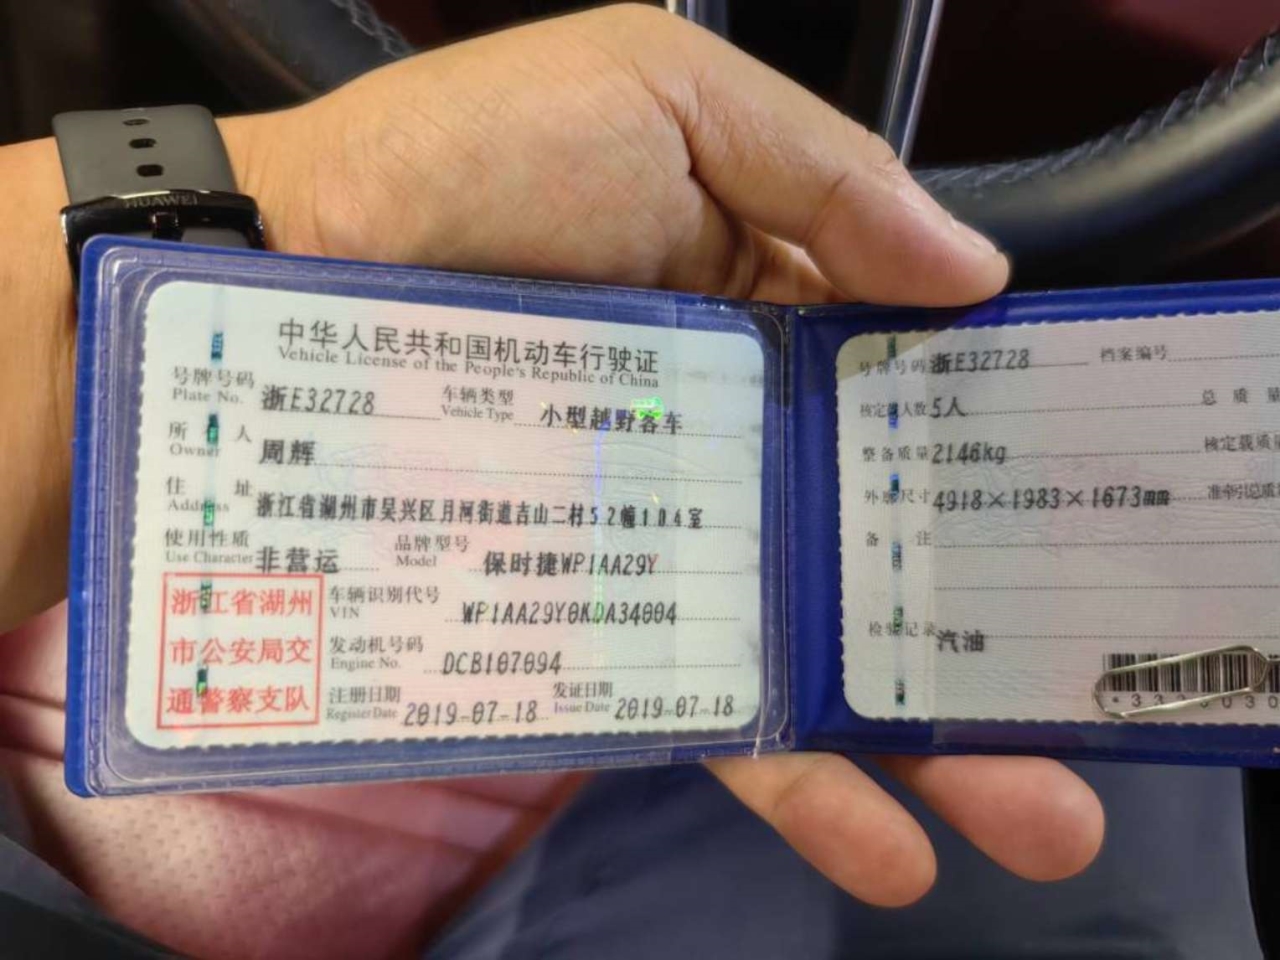 HUAWEI
中华人民共和国机动车行驶证
Vehicle License of the People's Republic of China
号牌号码 浙E32728 车辆类型 小型越野客车
Plate No. Vehicle Type
所有人 周辉
Owner
住址 浙江省湖州市吴兴区月河街道吉山二村52幢104室
Address
使用性质 非营运 品牌型号 保时捷WP1AA29Y
Use Character Model
浙江省湖州
市公安局交
通警察支队
车辆识别代号 WP1AA29Y0KDA34004
VIN
发动机号码 DCB107094
Engine No.
注册日期 2019-07-18 发证日期 2019-07-18
Register Date Issue Date
号牌号码 浙E32728 档案编号
核定载人数 5人 总质量
整备质量 2146kg 核定载质量
外廓尺寸 4918×1983×1673mm 准牵引总质量
备注
检验记录 汽油